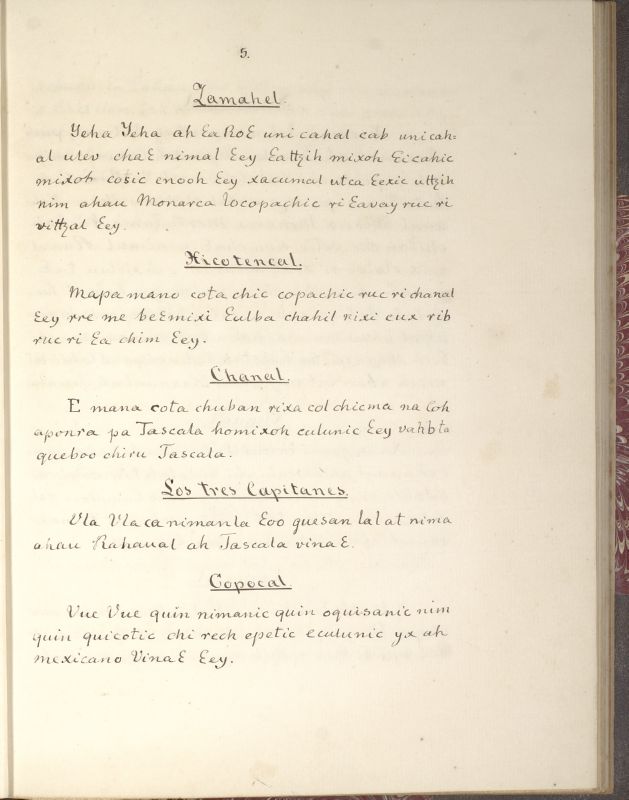 5.
Zamahel.
Yeha Yeha ah Ɛa RoƐ uni cahal cab unicah=
al ulev chaƐ nimal Ɛey Ɛattzih mixoh Ɛicahic
mixoh cosic enooh Ɛey xacumal utca Ɛexic uttzih
nim ahau Monarca locopachic ri Ɛavay ruc ri
vittzal Ɛey.
Xicotencal.
Mapa mano cota chic copachic ruc ri chanal
Ɛey rre me beƐmixi Ɛulba chahil rixi cux rib
ruc ri Ɛa chim Ɛey.
Chanal.
E mana cota chuban rixa col chicma na loh
aponra pa Tascala homixoh culunic Ɛey vahbta
queboo chiru Tascala.
Los tres Capitanes.
Vla Vlaca nimanla Ɛoo quesan lal at nima
ahau Rahaual ah Tascala vinaƐ.
Copocal.
Vue Vue quin nimanic quin oquisanic nim
quin quicotic chi rech epetic eculunic yx ah
mexicano VinaƐ Ɛey.